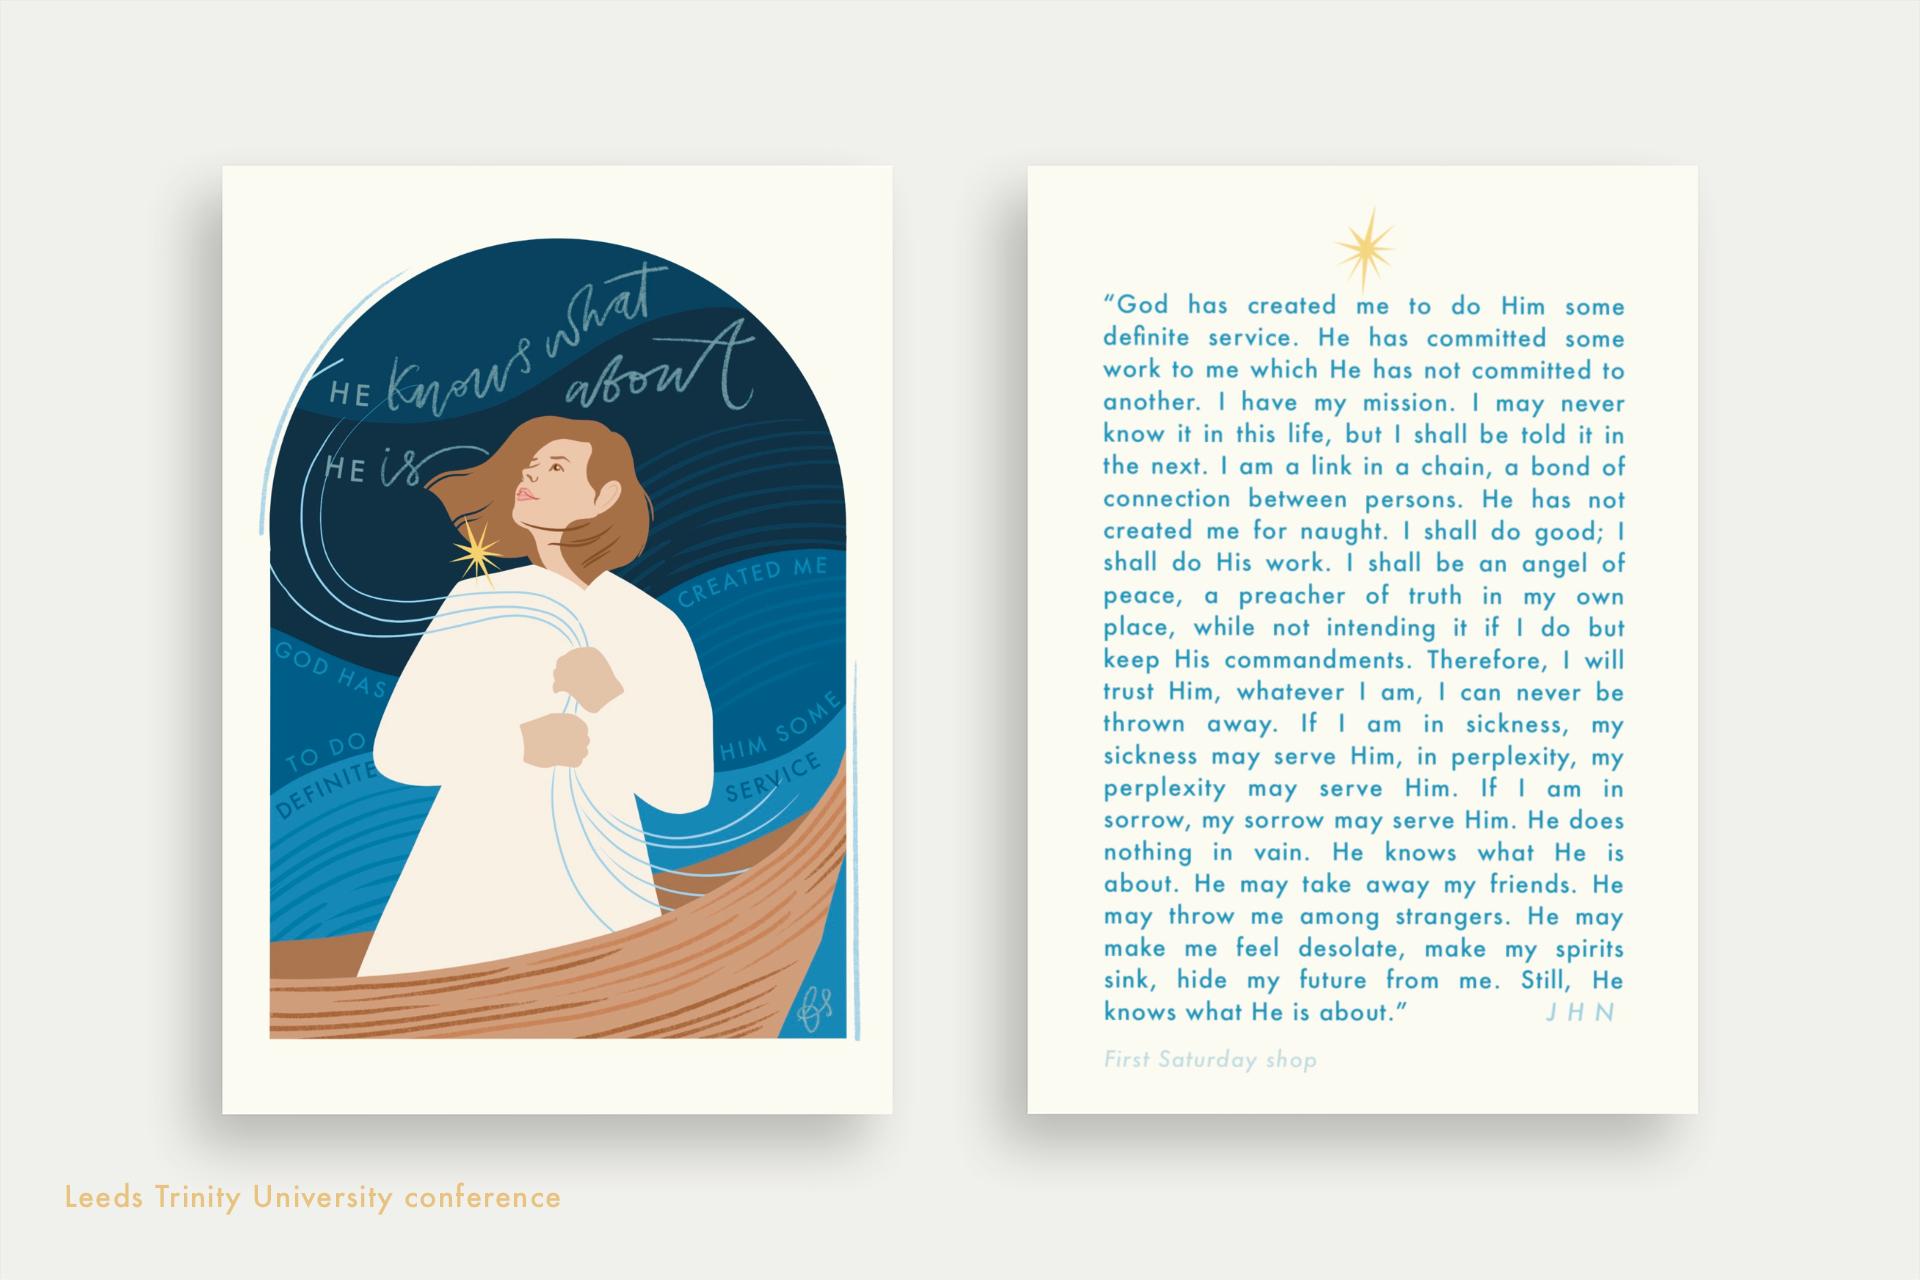 HE Knows what
about
HE is
CREATED ME
GOD HAS
TO DO
HIM SOME
DEFINITE
SERVICE
fs
“God has created me to do Him some
definite service. He has committed some
work to me which He has not committed to
another. I have my mission. I may never
know it in this life, but I shall be told it in
the next. I am a link in a chain, a bond of
connection between persons. He has not
created me for naught. I shall do good; I
shall do His work. I shall be an angel of
peace, a preacher of truth in my own
place, while not intending it if I do but
keep His commandments. Therefore, I will
trust Him, whatever I am, I can never be
thrown away. If I am in sickness, my
sickness may serve Him, in perplexity, my
perplexity may serve Him. If I am in
sorrow, my sorrow may serve Him. He does
nothing in vain. He knows what He is
about. He may take away my friends. He
may throw me among strangers. He may
make me feel desolate, make my spirits
sink, hide my future from me. Still, He
knows what He is about.” JHN
First Saturday shop
Leeds Trinity University conference